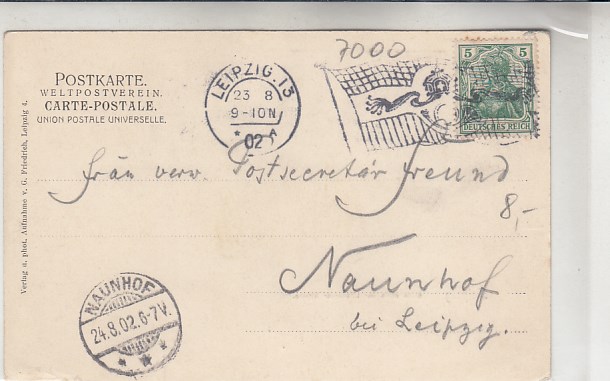 7000
POSTKARTE.
WELTPOSTVEREIN.
CARTE-POSTALE.
UNION POSTALE UNIVERSELLE.
LEIPZIG.13
23 8
9-10N
* 02 A
5 5
DEUTSCHES REICH
Frau verw. Postsecretär Freund
8,-
Naunhof
bei Leipzig.
NAUNHOF
24.8.02.6-7V.
* * *
Verlag u. phot. Aufnahme v. G. Friedrich, Leipzig 4.